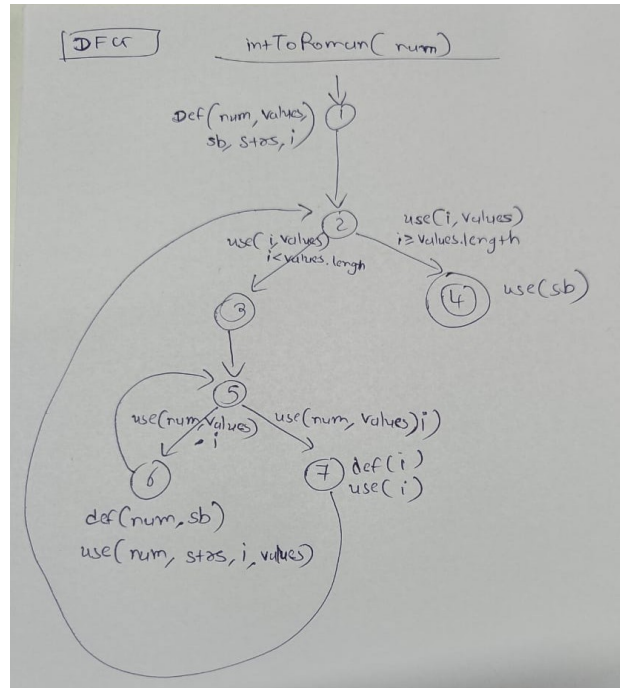 DFG
intToRoman( num)
1
Def(num, values,
sb, strs, i)
2
use(i, values)
i ≥ values.length
use(i, values)
i < values.length
4
use(sb)
3
5
use(num, values)
, i
use(num, values, i)
6
7
def(i)
use(i)
def(num, sb)
use(num, strs, i, values)